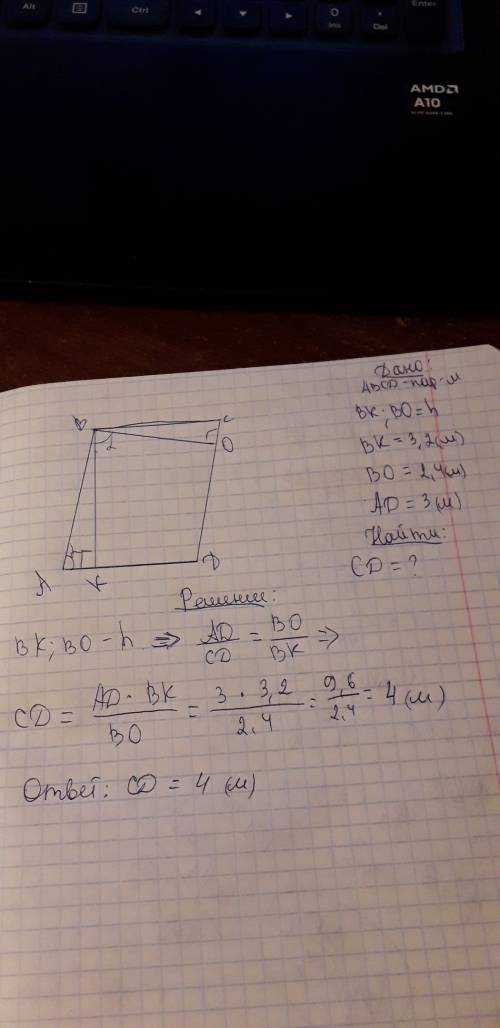 Alt
Ctrl
Ins
Del
Enter
AMD
A10
Дано
ABCD - пар-м
BK; BO = h
BK = 3,2(м)
BO = 2,4(м)
AD = 3 (м)
Найти:
CD = ?
B
C
2
O
A
K
D
Решение:
BK; BO - h ⇒ AD/CD = BO/BK ⇒
CD = AD · BK / BO = 3 · 3,2 / 2,4 = 9,6 / 2,4 = 4 (м)
Ответ: CD = 4 (м)